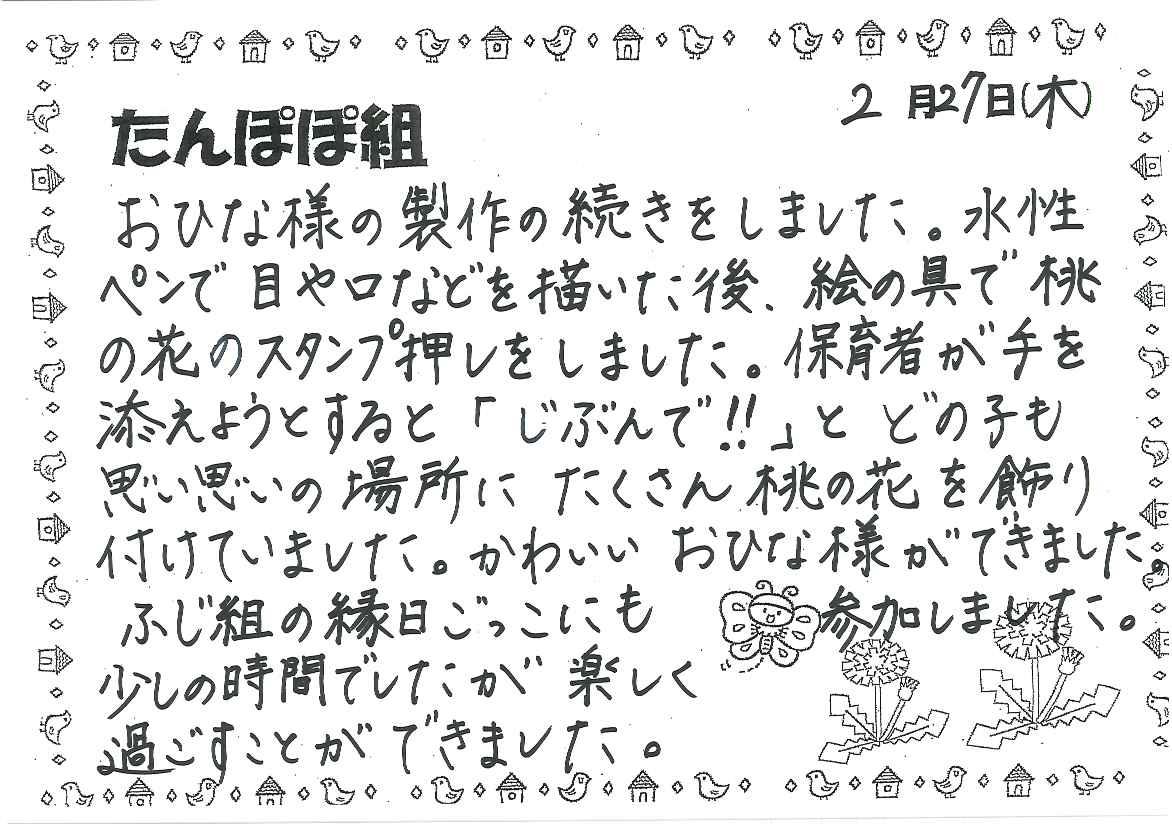 2月27日(木)
たんぽぽ組
おひな様の製作の続きをしました。水性
ペンで目や口などを描いた後、絵の具で桃
の花のスタンプ押しをしました。保育者が手を
添えようとすると「じぶんで!!」とどの子も
思い思いの場所にたくさん桃の花を飾り
付けていました。かわいいおひな様ができました。
ふじ組の縁日ごっこにも参加しました。
少しの時間でしたが楽しく
過ごすことができました。